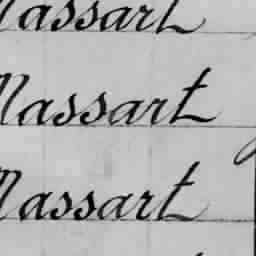 Massart
Massart
Massart